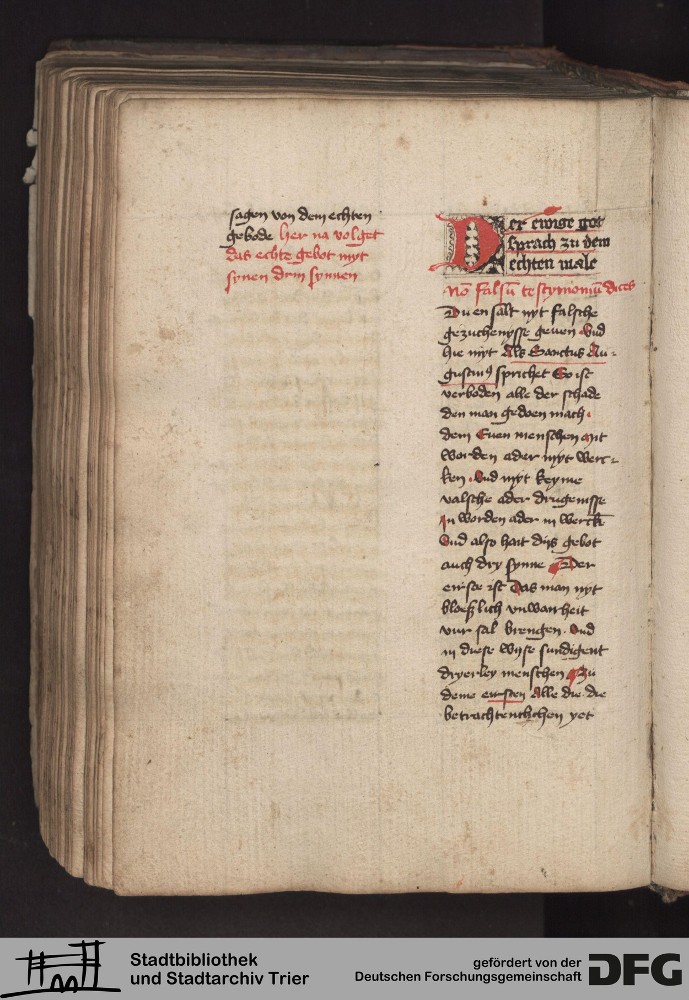 sagen von dem echten
gebode her na volget
das echte gebot myt
synen drin synnen
Der ewige got
sprach zu dem
echten male
Nō falsū testymoniū dices
Du en salt nyt falsche
gezuchenysse geuen Vnd
hie myt Als Sanctus Au-
gustinꝰ sprichet So ist
verboden alle der schade
den man gedoen mach
dem Euen menschen mit
worden ader myt werc-
ken. Vnd myt keyme
valsche ader drugenisse
In worden ader in werckē
Vnd also hait dijs gebot
auch dry synne Der
eirste ist Das man nyt
bloeßlich vnwarheit
vur sal brengen. Vnd
in diese wijse sundigent
dryerley menschen Zu
deme eirsten Alle die die
betrachtentlichen yet
Stadtbibliothek
und Stadtarchiv Trier
gefördert von der
Deutschen Forschungsgemeinschaft
DFG